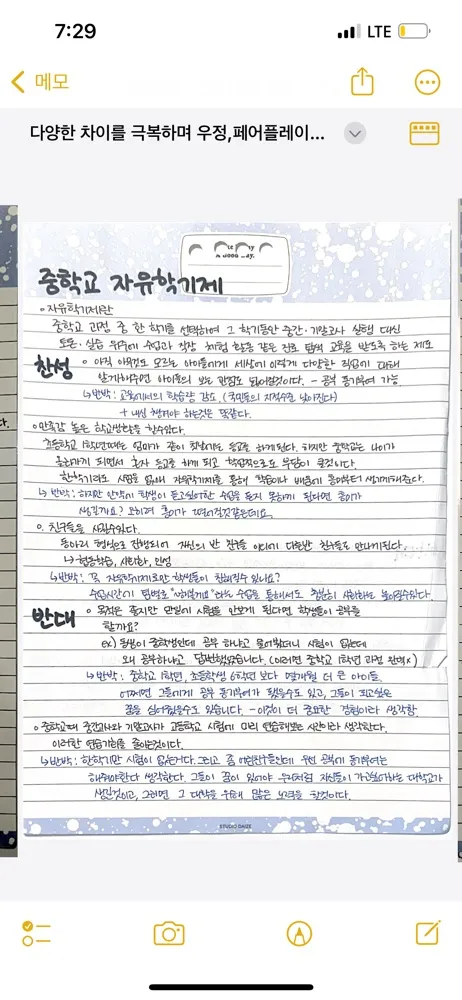 7:29
LTE
메모
다양한 차이를 극복하며 우정,페어플레이...
중학교 자유학기제
◦ 자유학기제란
중학교 과정 중 한 학기를 선택하여 그 학기동안 중간·기말고사 실행 대신
토론·실습 위주의 수업과 직장 체험 활동 같은 진로 탐색 교육을 받도록 하는 제도
찬성 ◦ 아직 아무것도 모르는 아이들에게 세상에 이렇게 다양한 직업에 대해
알게해주면 아이들의 보는 관점도 넓어질것이다. - 공부 동기부여 가능
↳ 반박: 교육에서의 학습량 감소 (국민들의 지적수준 낮아진다)
+ 내신 챙겨야 하는것은 똑같다.
◦ 만족감 높은 학교생활을 할수있다.
초등학교 1학년때는 엄마가 같이 등교를 하게된다. 하지만 중학교는 나이가
혼자 등교를 하게 되고 학업적으로도 부담이 클것이다.
한학기라도 시험을 없애 자유학기제를 통해 학업이나 배움에 흥미부터 생기게해준다.
↳ 반박: 하지만 만약에 학생이 듣고싶어한 수업을 듣지 못하게 된다면 흥미가
생길까요? 오히려 흥미가 떨어질것같은데요.
◦ 친구들을 사귈수있다.
동아리 형식으로 진행되어 자신의 반 친구들 이외에 다른반 친구들도 만나게된다.
↳ 협동학습, 사회화, 인성
↳ 반박: 꼭 자유학기제로만 학생들이 친해질수 있나요?
수업을 통해서도 충분히 사회화는 높아질수있다.
반대 ◦ 목적은 좋지만 만일에 시험을 안보게 된다면 학생들이 공부를
할까요?
ex) 동생이 중학생인데 공부 하냐고 물어봤더니 시험이 없는데
왜 공부하냐고 답변했었습니다. (이러면 중학교 1학년 과정 완벽x)
↳ 반박: 중학교 1학년, 초등학생 6학년 보다 몇개월 더 큰 아이들.
어쩌면 그들에게 공부 동기부여가 됐을수도 있고, 그들이 되고싶은
꿈을 심어줬을수도 있습니다. - 이것이 더 중요한 경험이라 생각함.
◦ 중학교때 중간고사와 기말고사가 고등학교 시험에 미리 연습해보는 시간이라 생각한다.
이러한 연습기회를 줄이는것이다.
↳ 반박: 한학기만 시험이 없는거다. 그리고 좀 어린친구들인데 우선 공부에 동기부여는
해줘야한다 생각한다. 그들이 꿈이 있어야 우리처럼 자신들이 가고싶어하는 대학교가
생길것이고, 그러면 그 대학을 위해 많은 노력을 할것이다.
STUDIO DAIZE